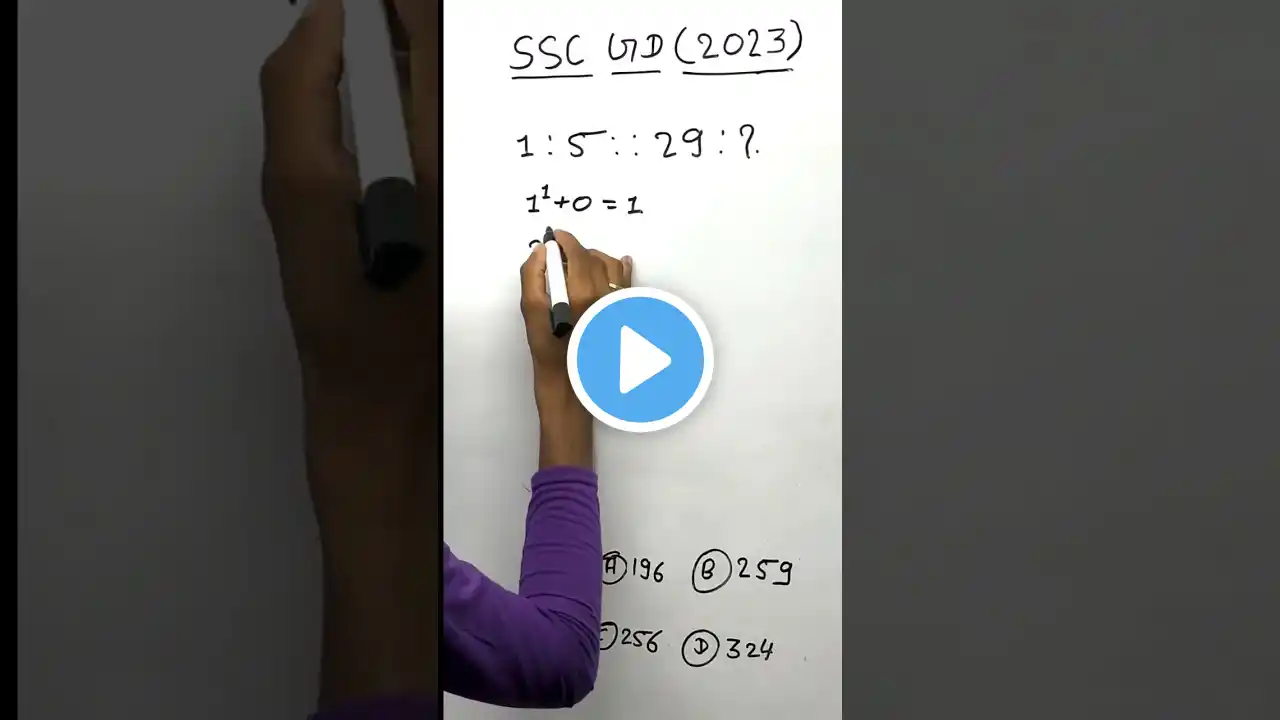 SSC GD (2023)
1 : 5 : : 29 : ?
1¹ + 0 = 1
(A) 196 (B) 259
256 (D) 324